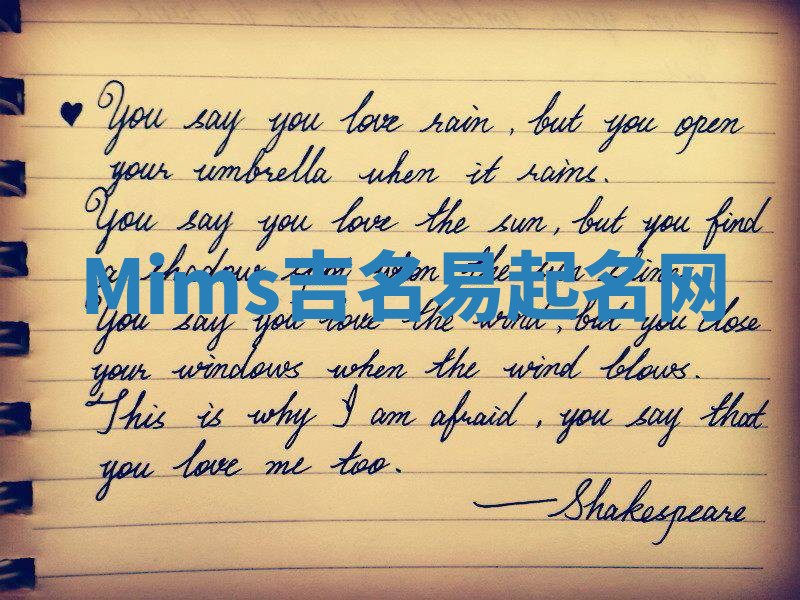 ♥ You say you love rain, but you open
your umbrella when it rains.
You say you love the sun, but you find
a shadow spot when the sun shines.
Mims吉名易起名网
You say you love the wind, but you close
your windows when the wind blows.
This is why I am afraid, you say that
you love me too.
—Shakespeare